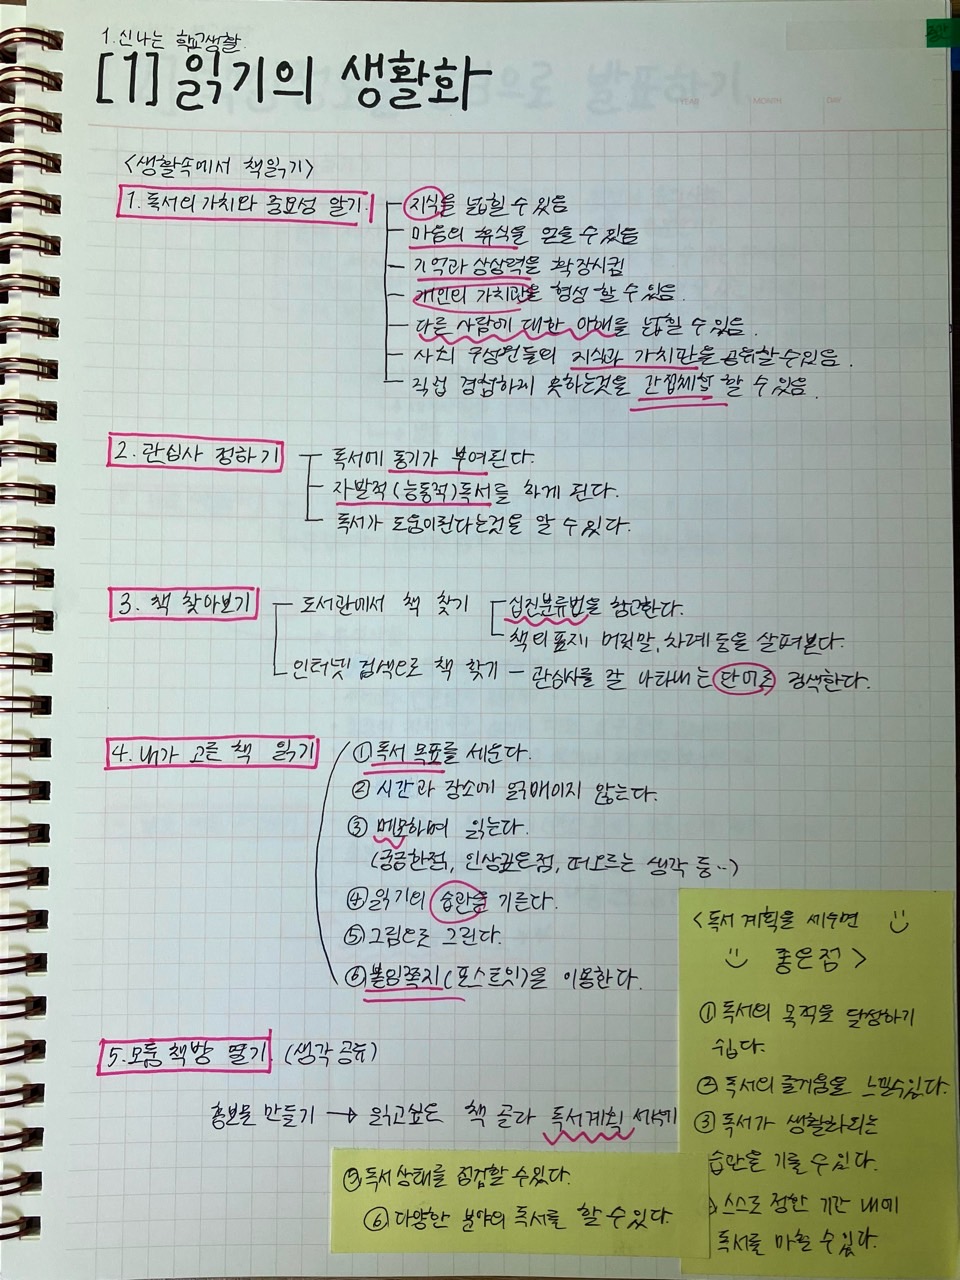 1. 신나는 학교생활
[1] 읽기의 생활화
YEAR MONTH DAY
<생활속에서 책읽기>
1. 독서의 가치와 중요성 알기
지식을 넓힐 수 있음
마음의 휴식을 얻을 수 있음
기억과 상상력을 확장시킴
개인의 가치관을 형성 할 수 있음.
다른 사람에 대한 이해를 넓힐 수 있음.
사회 구성원들의 지식과 가치관을 공유할 수 있음.
직접 경험하지 못하는것을 간접체험 할 수 있음.
2. 관심사 정하기
독서에 동기가 부여된다.
자발적(능동적)독서를 하게 된다.
독서가 도움이된다는것을 알 수 있다.
3. 책 찾아보기
도서관에서 책 찾기
십진분류법을 참고한다.
책의 표제 머릿말, 차례 등을 살펴본다.
인터넷 검색으로 책 찾기 - 관심사를 잘 나타내는 단어로 검색한다.
4. 내가 고른 책 읽기
① 독서 목표를 세운다.
② 시간과 장소에 얽매이지 않는다.
③ 메모하며 읽는다.
(궁금한점, 인상깊은점, 떠오르는 생각 등..)
④ 읽기의 습관을 기른다.
⑤ 그림으로 그린다.
⑥ 붙임쪽지(포스트잇)을 이용한다.
5. 모둠 책방 열기 (생각 공유)
홍보물 만들기 → 읽고싶은 책 골라 독서계획 세우기
<독서 계획을 세우면
좋은점>
① 독서의 목적을 달성하기
쉽다.
② 독서의 즐거움을 느낄수있다.
③ 독서가 생활화되는
습관을 기를 수 있다.
스스로 정한 기간 내에
독서를 마칠 수 있다.
⑤ 독서 상태를 점검할 수있다.
⑥ 다양한 분야의 독서를 할 수 있다.